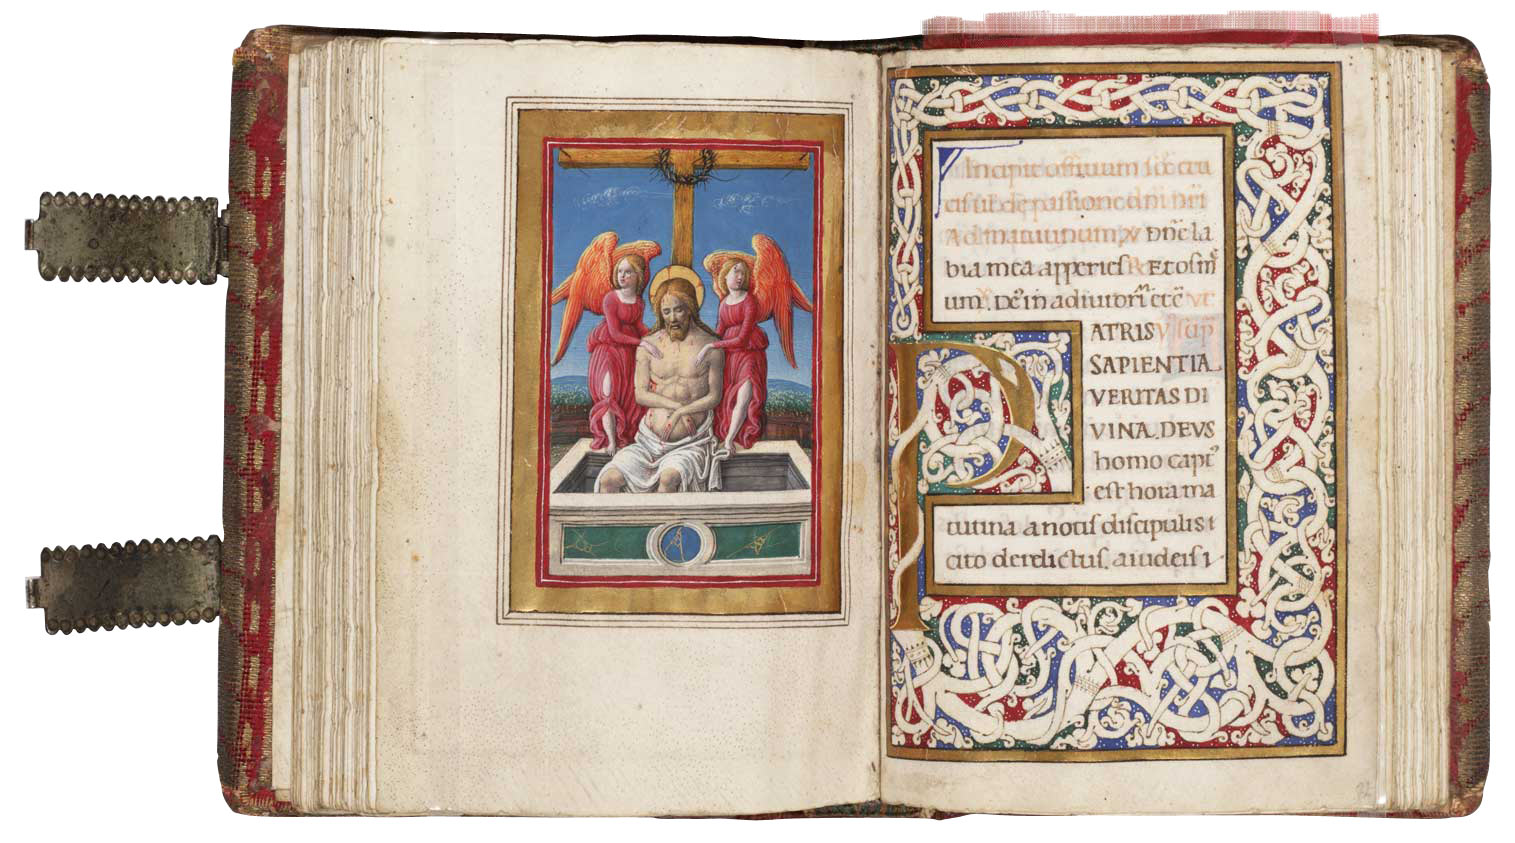 Incipit offitium sc̄e cru
cis siue de passione dn̄i nr̄i
Ad matutinum. ℣ Dn̄e la
bia mea apperies R Et os m̄
um. ℣ Ds̄ in adiutoriū etc̄ ut
PATRIS sup̄
SAPIENTIA
VERITAS DI
VINA. DEVS
homo capt⁹
est hora ma
tutina a notis discipulis
cito derelictus, a iudeis
72